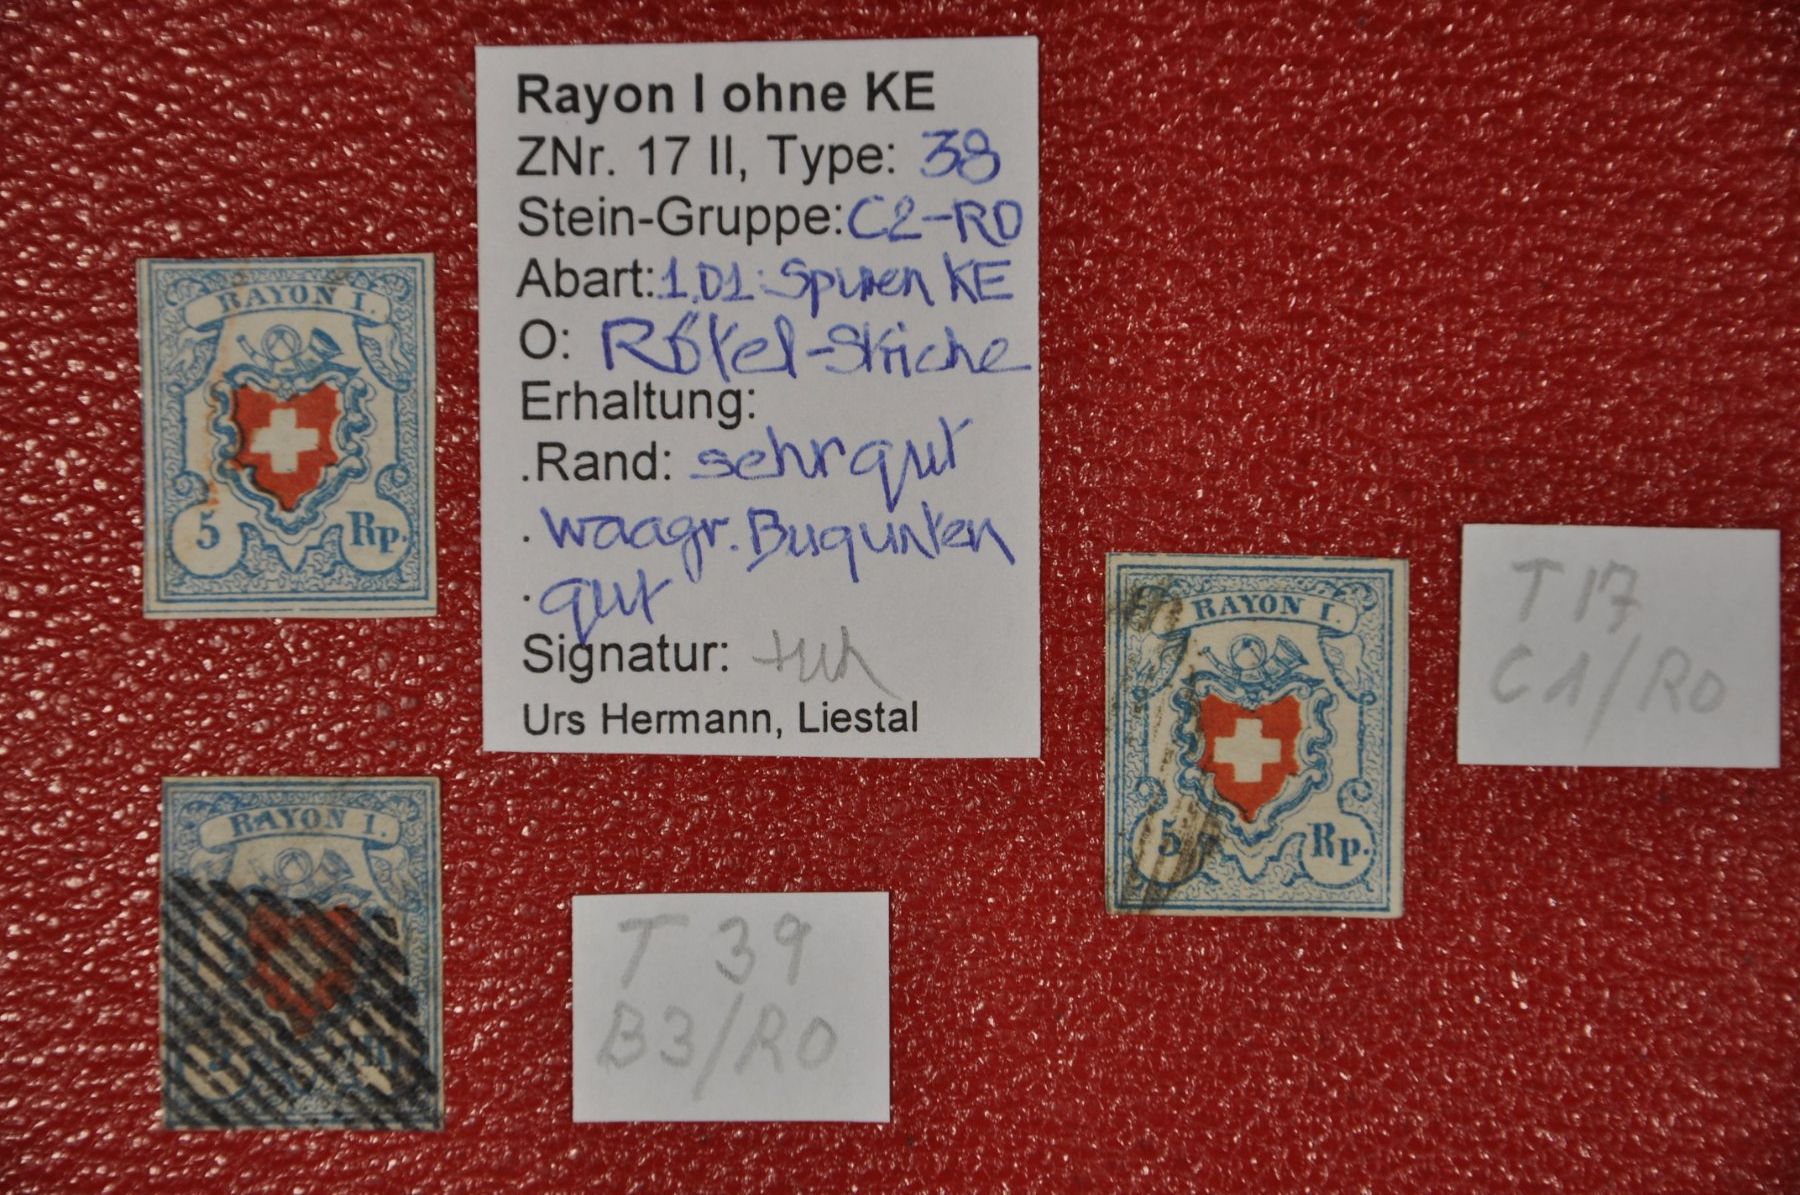 Rayon I ohne KE
ZNr. 17 II, Type: 38
Stein-Gruppe: C2-RO
Abart: 1.01: Spuren KE
O: Rötel-Striche
Erhaltung:
.Rand: sehr gut
. waagr. Bugunten
. gut
Signatur:
Urs Hermann, Liestal
RAYON I.
5 Rp.
RAYON I.
T 39
B3/RO
RAYON I.
5 Rp.
T 17
C1/RO